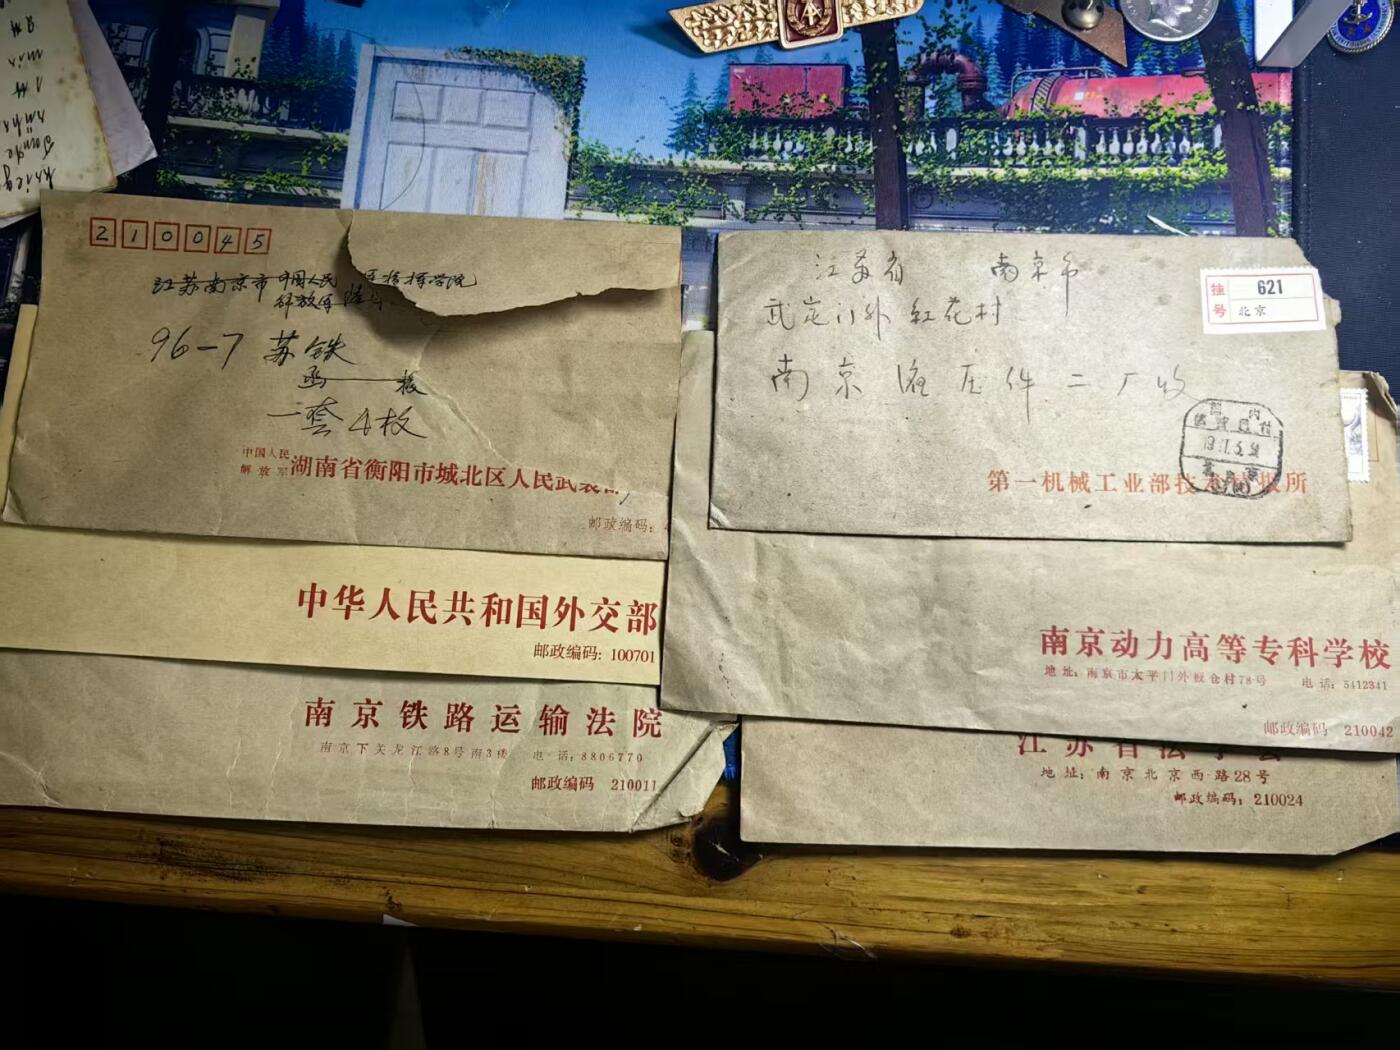 210045
江苏南京市 中国人民
解放军
指挥学院
96-7 苏铁
一套4枚
中国人民
解放军
湖南省衡阳市城北区人民武装部
邮政编码:
中华人民共和国外交部
邮政编码: 100701
南京铁路运输法院
南京下关龙江路8号南3楼 电话:8806770
邮政编码 210011
江苏省 南京市
武定门外红花村
南京液压件二厂收
挂号 621
北京
第一机械工业部技术情报所
南京动力高等专科学校
地址:南京市太平门外板仓村78号 电话:5412341
邮政编码 210042
江苏省法学会
地址:南京北京西路28号
邮政编码:210024